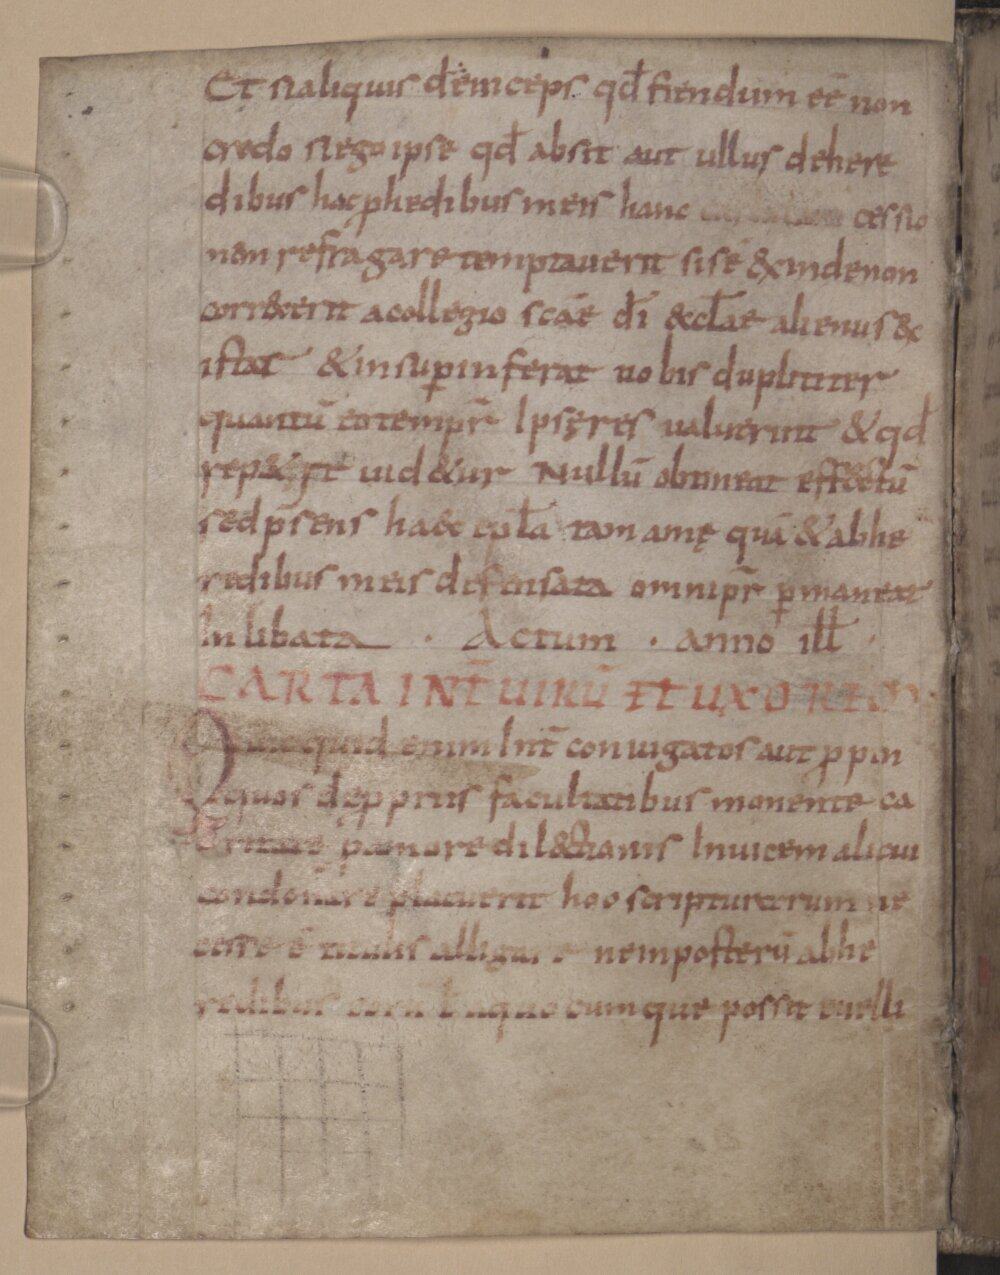 Et si aliquis deinceps qd̄ fiendum eē non
credo si ego ipse qd̄ absit aut ullus de here
dibus hac p̱hedibus meis hanc cessio
nem refragare temptauerit si se ē &xinde non
corr&erit a collegio scāe dī &cl̄ae alienus &x
istat & insup̱ inferat uobis dupliciter
quantū eo tempr̄ Ipsę res ualuerint & qd̄
rep&it uid&ur Nullū obtineat effectū
sed p̄sens haec epl̄a tam a mę quā & ab he
redibus meis defensata omnipr̄ p̱maneat
Inlibata · Actum · anno ill̄ ·
CARTA INT̄ UIRŪ ET UXOREM
Quicquid enim Int̄ coniugatos aut p̱ poi
quos de p̱priis facultatibus manente ca
ritate p̱ amore dil&tionis Inuicem alicui
condonare placuerit hoc scripturarum ne
cesse ē titulis alligare ne in posterū ab he
redibus eorū l̄ a quocumque possit euelli